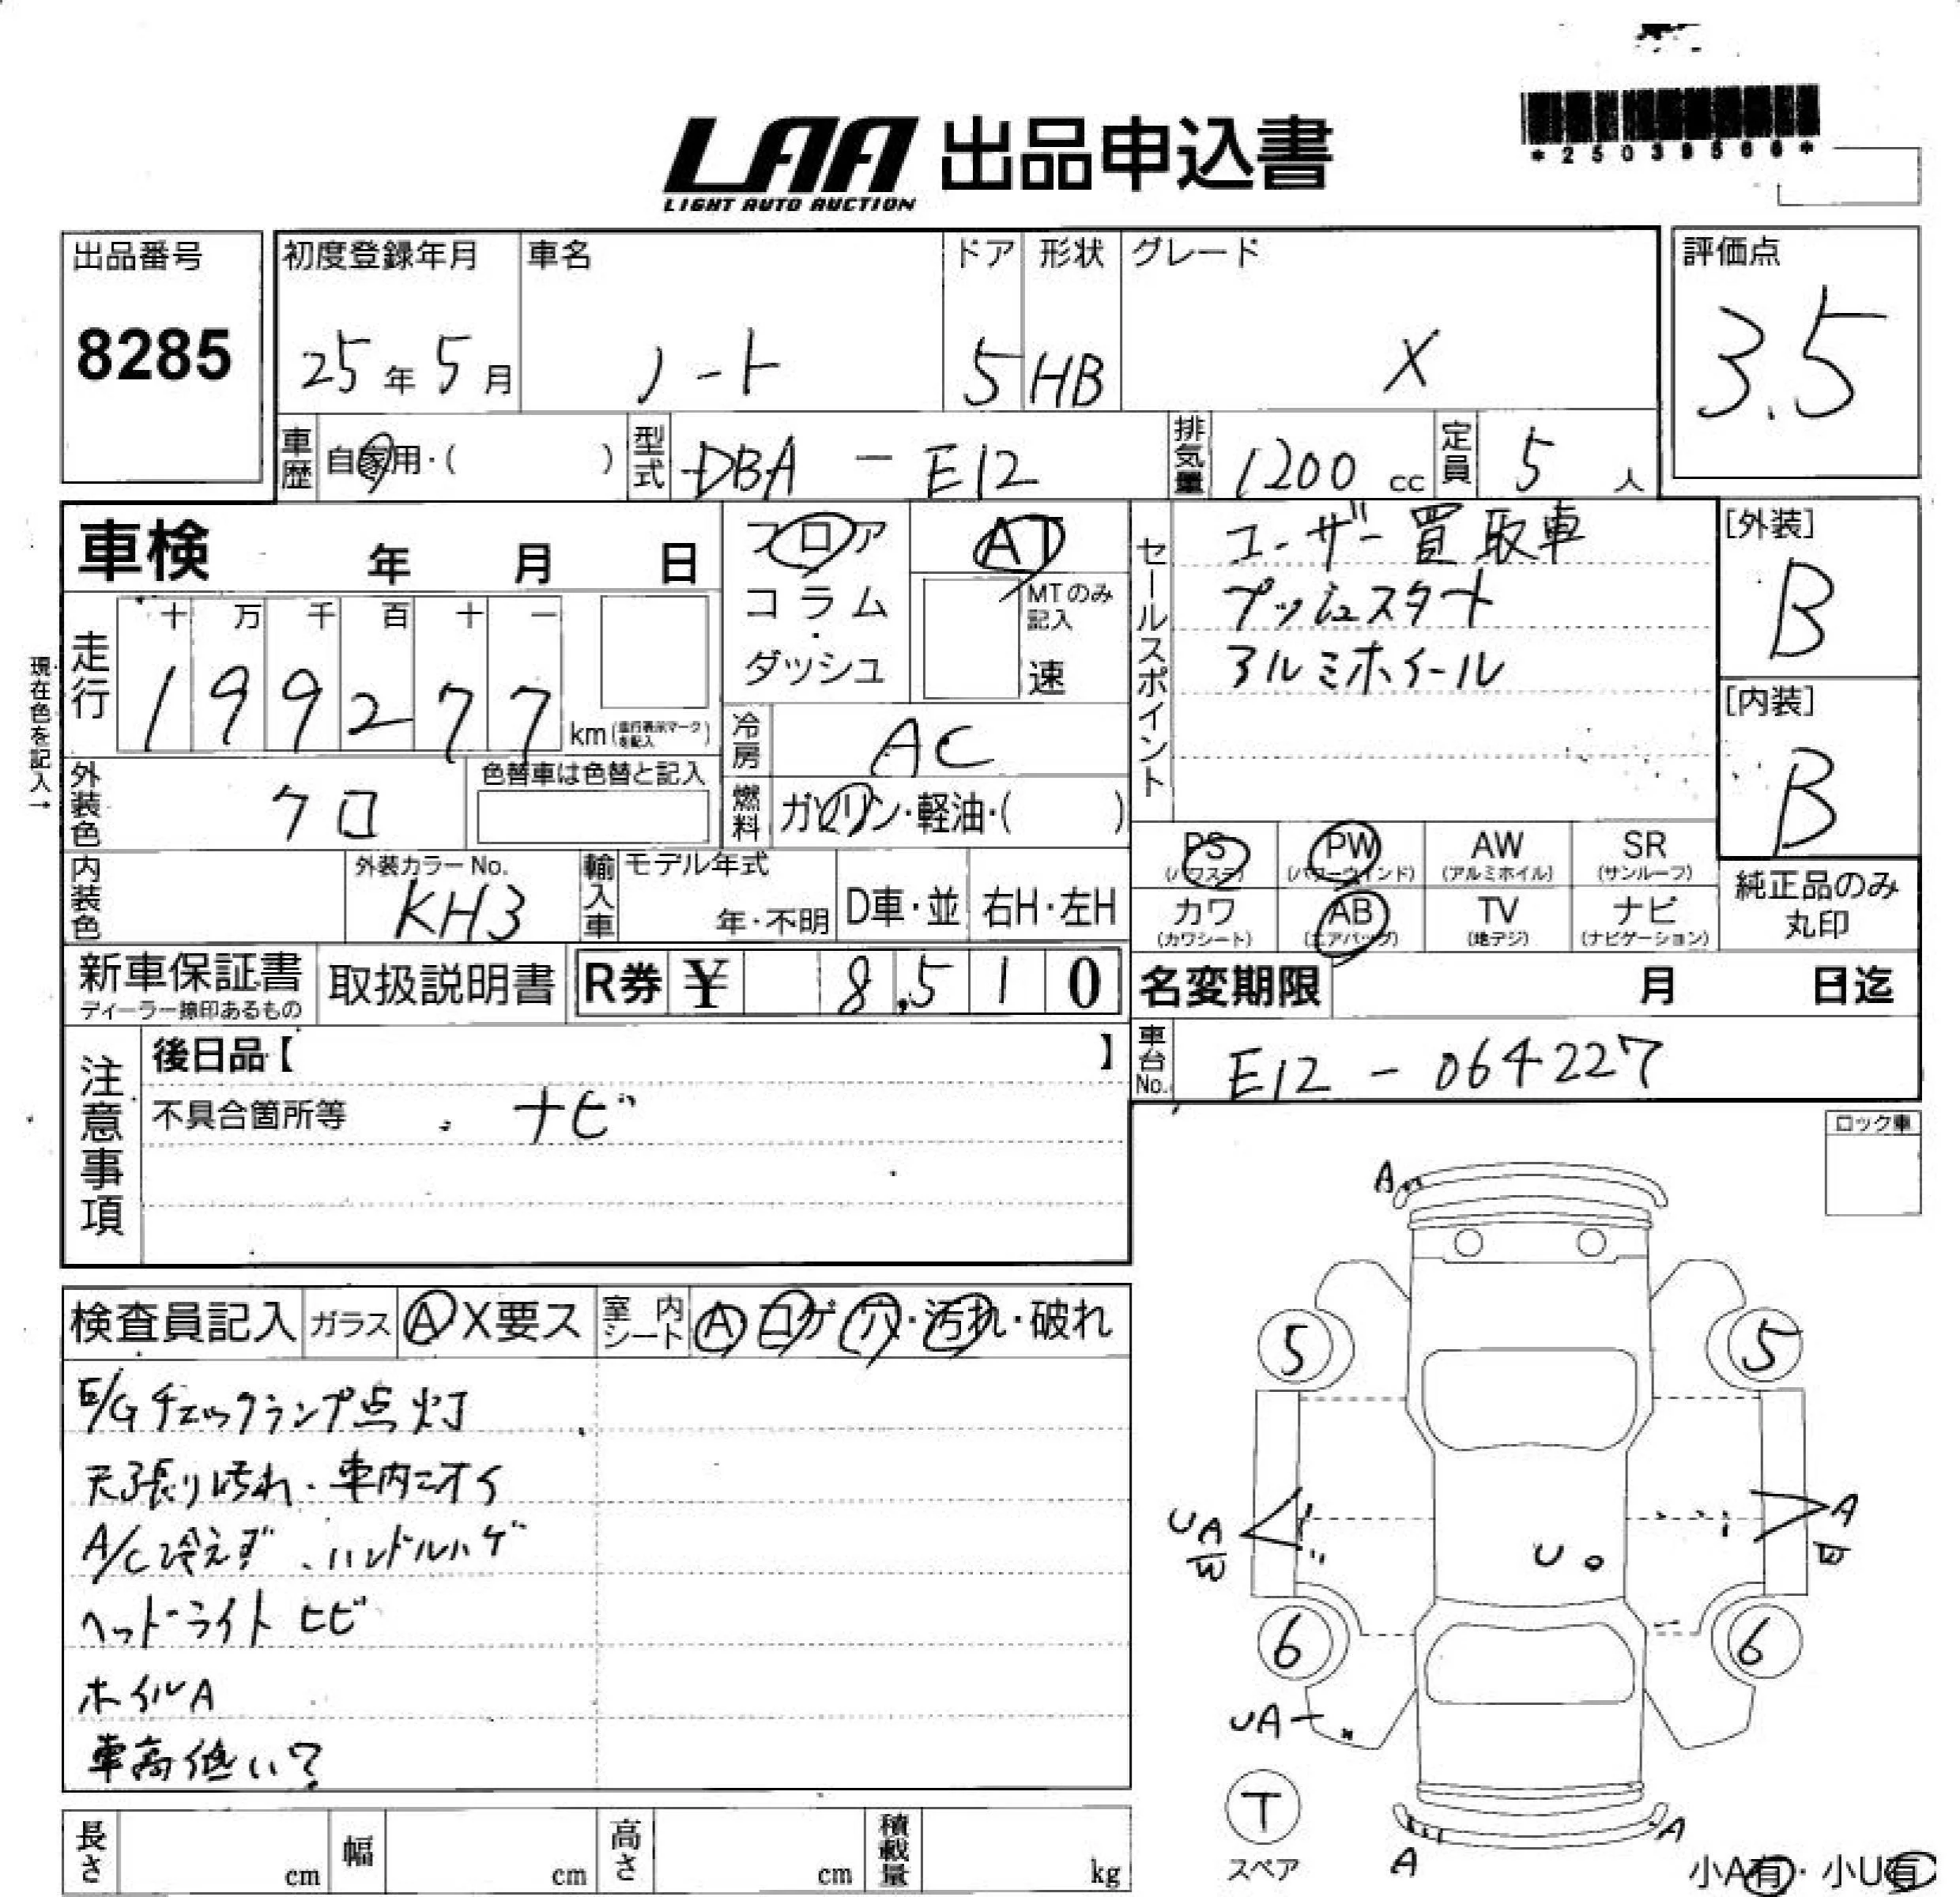 *25039566*
LAA 出品申込書
LIGHT AUTO AUCTION
出品番号
8285
初度登録年月
25年 5月
車名
ノート
ドア
5
形状
HB
グレード
X
評価点
3.5
車歴 自家用・( )
型式 DBA - E12
排気量 1200 cc
定員 5 人
車検 年 月 日
フロア
コラム
・
ダッシュ
AT
MTのみ
記入
速
セールスポイント
ユーザー買取車
プッシュスタート
アルミホイール
[外装]
B
[内装]
B
現在色を記入→
走行
十 万 千 百 十 一
1 9 9 2 7 7
km (走行表示マークを記入)
冷房 AC
外装色 クロ
色替車は色替と記入
燃料 ガソリン・軽油・( )
PS (パワステ)
PW (パワーウインド)
AW (アルミホイル)
SR (サンルーフ)
カワ (カワシート)
AB (エアバッグ)
TV (地デジ)
ナビ (ナビゲーション)
純正品のみ
丸印
内装色
外装カラーNo.
KH3
輸入車
モデル年式
年・不明
D車・並
右H・左H
新車保証書
ディーラー捺印あるもの
取扱説明書
R券 ¥ 8,510
名変期限 月 日迄
車台No. E12 - 064227
注意事項
後日品【 】
不具合箇所等 ナビ
ロック車
検査員記入 ガラス A X要ス 室内シート A コゲ 穴・汚れ・破れ
E/Gチェックランプ点灯
天張り汚れ、車内ニオイ
A/C冷えず、ハンドルハゲ
ヘッドライトヒビ
ホイルA
車高低い?
A
5
5
UA
W
A
W
U
6
6
UA
T
スペア
A
A
小A有・小U有
長さ cm
幅 cm
高さ cm
積載量 kg